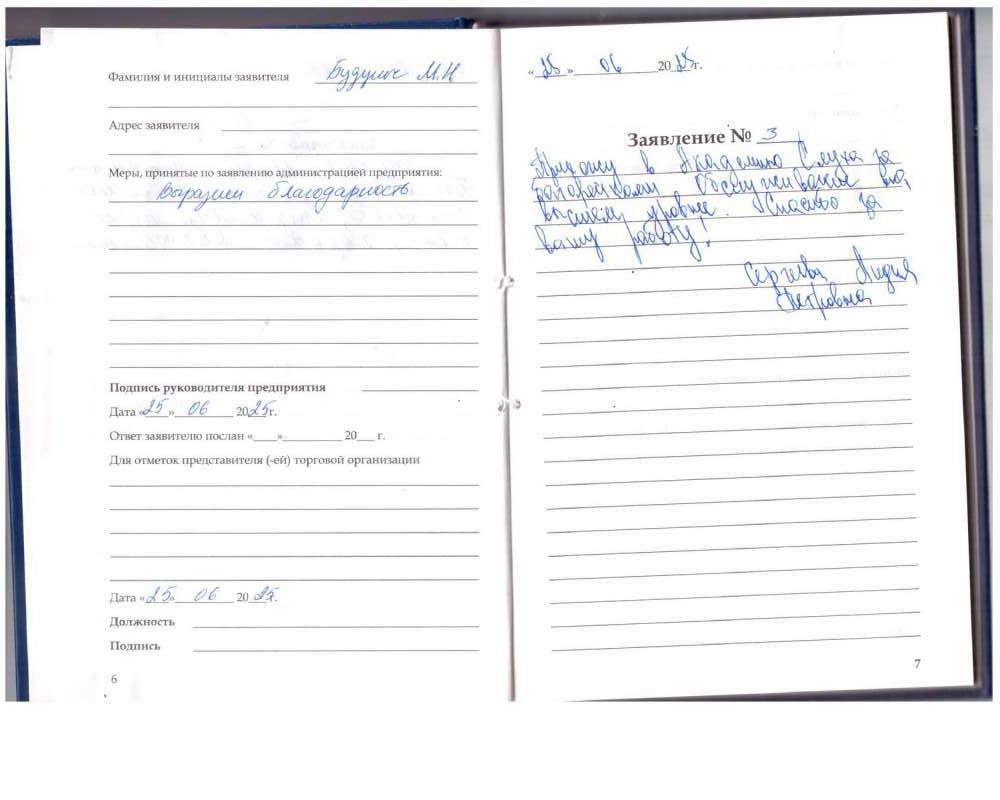 Фамилия и инициалы заявителя Будулос М.Н
Адрес заявителя
Меры, принятые по заявлению администрацией предприятия:
Выразили благодарность
Подпись руководителя предприятия
Дата «25» 06 2025г.
Ответ заявителю послан «___»__________ 20___ г.
Для отметок представителя (-ей) торговой организации
Дата «25» 06 2025г.
Должность
Подпись
6
«25» 06 2025г.
Заявление № 3
Прихожу в Академию Слуха за
батарейками. Обслуживание на
высшем уровне. Спасибо за
вашу работу!
Сергеева Лидия
Петровна
7